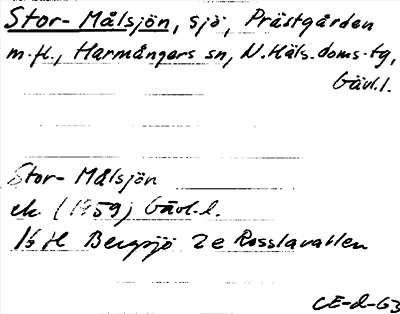 Stor-Målsjön, sjö, Prästgården
m.fl., Harmångers sn, N. Häls. doms-tg,
Gävl.l.
Stor-Målsjön
ek. (1959) Gävl.l.
Bergsjö 2e Rosslavallen
CE-d-63